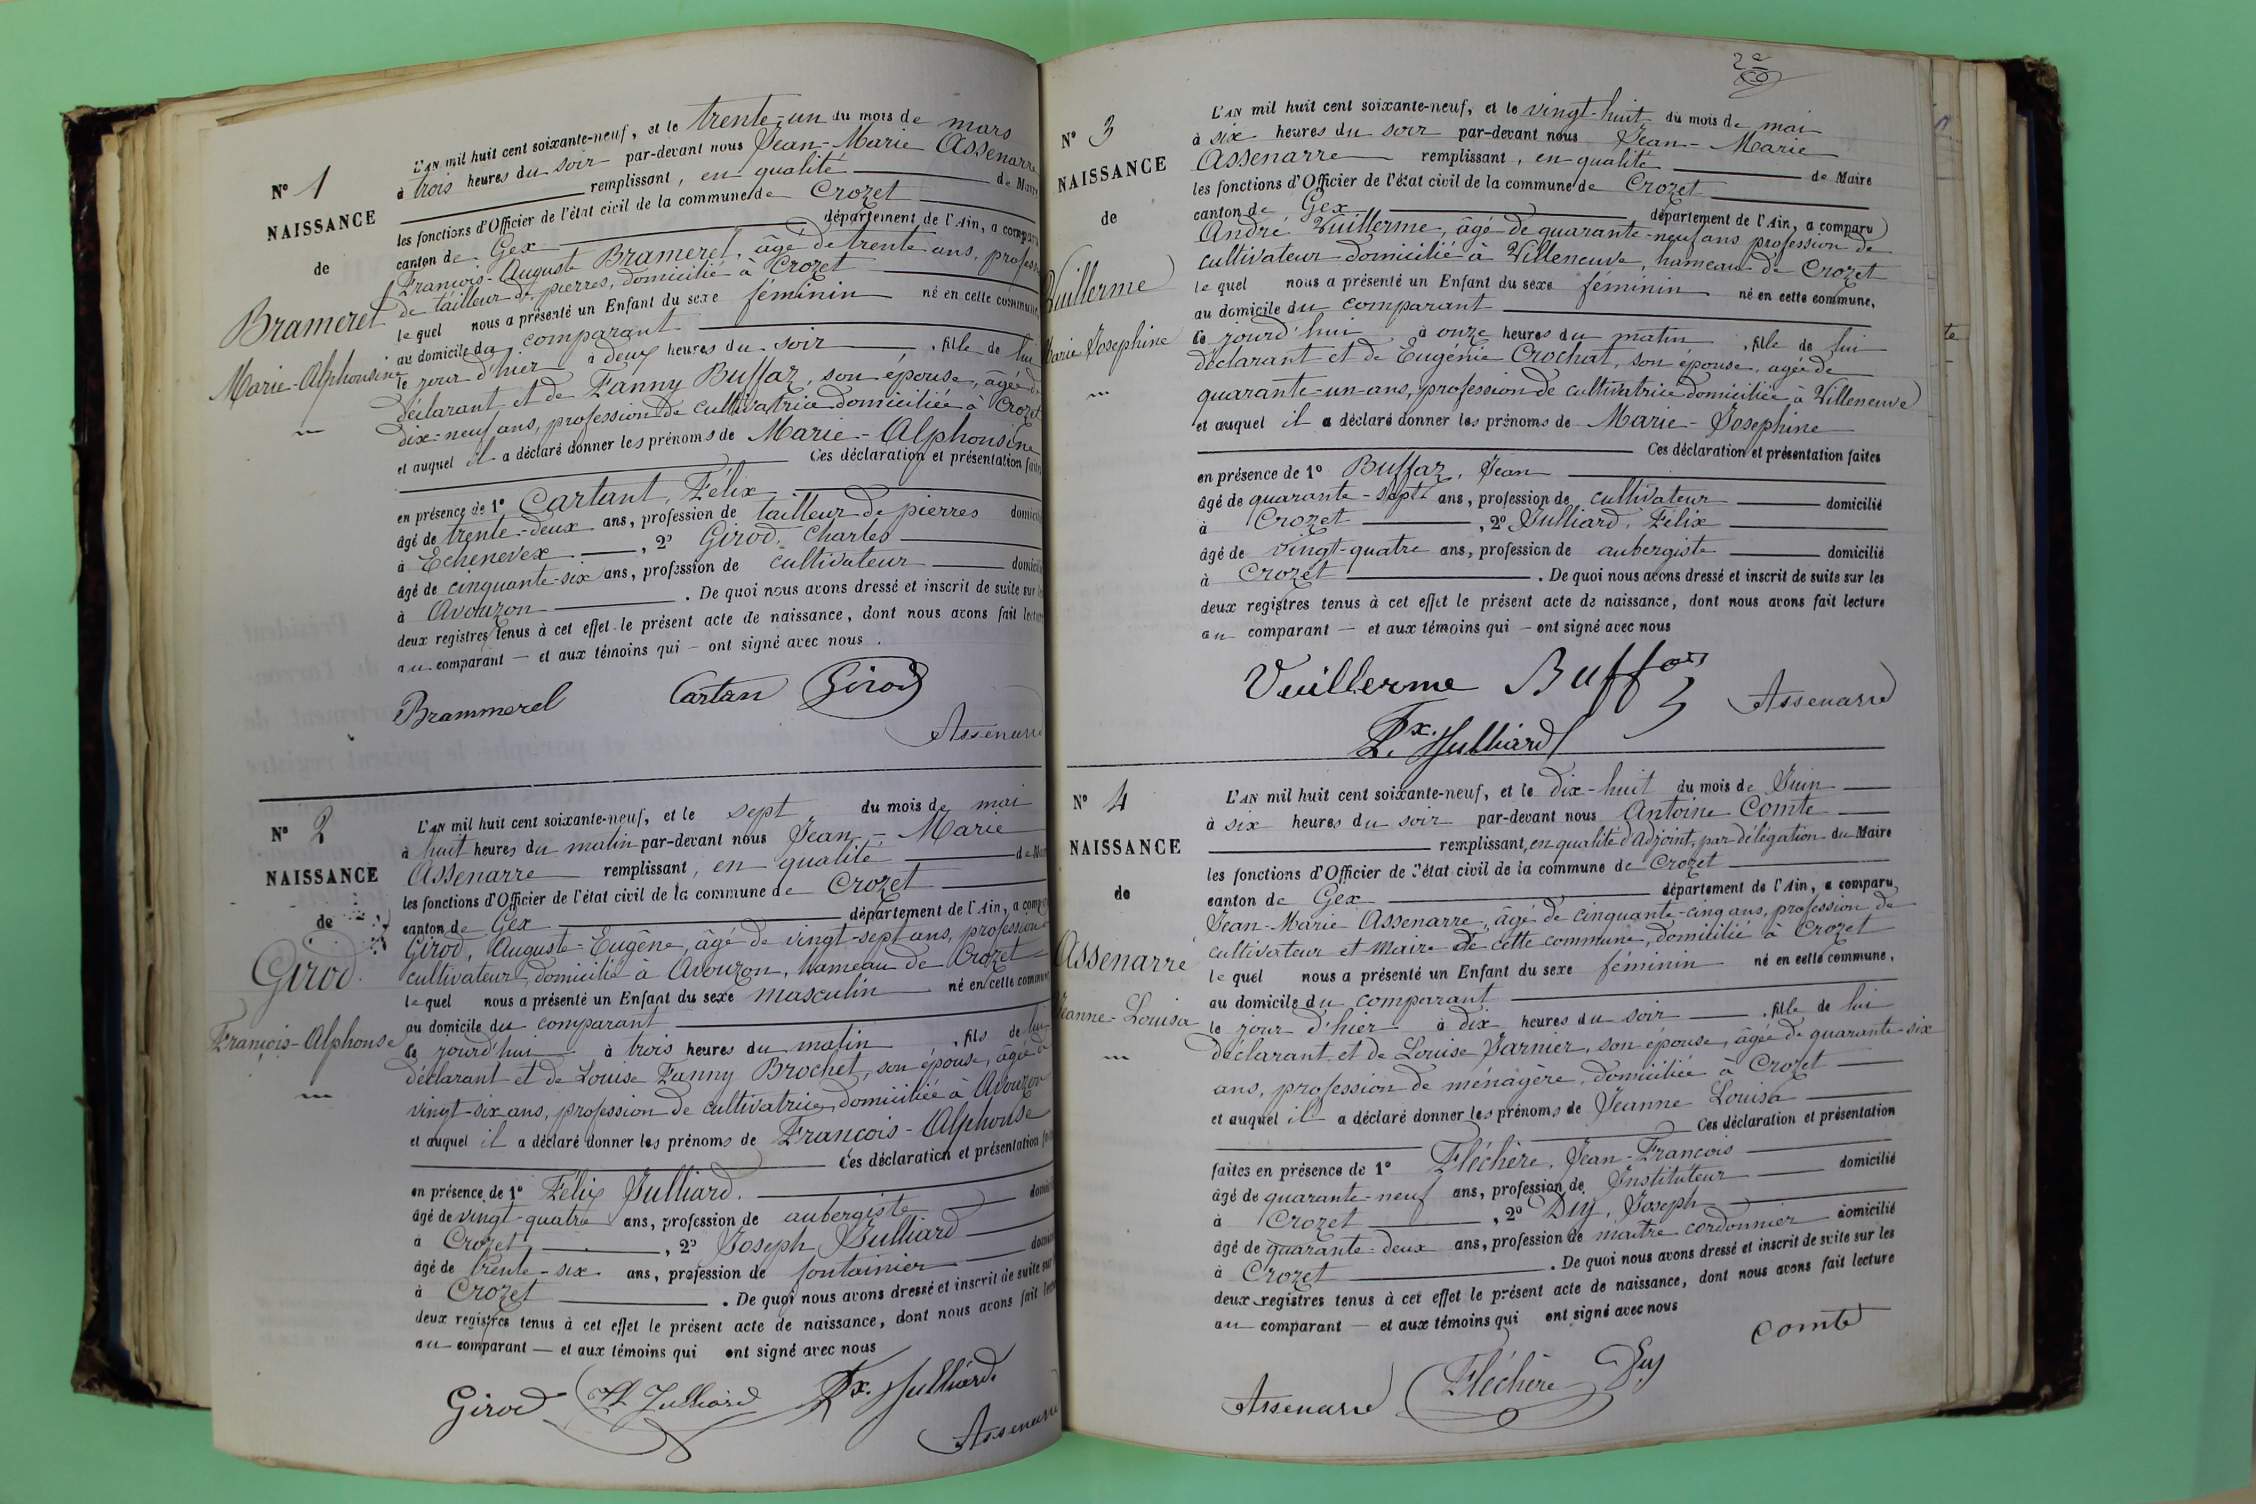 N° 1
NAISSANCE
de
Brameret
Marie-Alphonsine
L'AN mil huit cent soixante-neuf, et le trente-un du mois de mars
à trois heures du soir par-devant nous Jean-Marie Assenarre
remplissant, en qualité de Maire
les fonctions d'Officier de l'état civil de la commune de Crozet
canton de Gex département de l'Ain, a comparu
François-Auguste Brameret, âgé de trente ans, profession
de tailleur de pierres, domicilié à Crozet
le quel nous a présenté un Enfant du sexe féminin né en cette commune,
au domicile du comparant
le jour d'hier à deux heures du soir, fille de lui
déclarant et de Fanny Buffaz, son épouse, âgée de
dix-neuf ans, profession de cultivatrice domiciliée à Crozet
et auquel il a déclaré donner les prénoms de Marie-Alphonsine
Ces déclaration et présentation faites
en présence de 1° Cartant, Félix
âgé de trente-deux ans, profession de tailleur de pierres domicilié
à Echenevex, 2° Girod, Charles
âgé de cinquante-six ans, profession de cultivateur domicilié
à Avouzon. De quoi nous avons dressé et inscrit de suite sur les
deux registres tenus à cet effet le présent acte de naissance, dont nous avons fait lecture
au comparant — et aux témoins qui — ont signé avec nous.
Brammerel Cartan Girod
Assenarre
N° 2
NAISSANCE
de
Girod.
François-Alphonse
L'AN mil huit cent soixante-neuf, et le sept du mois de mai
à huit heures du matin par-devant nous Jean-Marie
Assenarre remplissant, en qualité de Maire
les fonctions d'Officier de l'état civil de la commune de Crozet
canton de Gex département de l'Ain, a comparu
Girod, Auguste-Eugêne, âgé de vingt-sept ans, profession
cultivateur, domicilié à Avouzon, hameau de Crozet
le quel nous a présenté un Enfant du sexe masculin né en cette commune
au domicile du comparant
ce jourd'hui à trois heures du matin, fils de lui
déclarant et de Louise Fanny Brochet, son épouse, âgée de
vingt-six ans, profession de cultivatrice, domiciliée à Avouzon
et auquel il a déclaré donner les prénoms de François-Alphonse
Ces déclaration et présentation faites
en présence de 1° Félix Julliard.
âgé de vingt-quatre ans, profession de aubergiste domicilié
à Crozet, 2° Joseph Julliard
âgé de trente-six ans, profession de fontainier domicilié
à Crozet. De quoi nous avons dressé et inscrit de suite sur
deux registres tenus à cet effet le présent acte de naissance, dont nous avons fait lecture
au comparant — et aux témoins qui ont signé avec nous
Girod Julliard Fx. Julliard.
Assenarre
2e
N° 3
NAISSANCE
de
Vuillerme
Marie Josephine
L'AN mil huit cent soixante-neuf, et le vingt-huit du mois de mai
à six heures du soir par-devant nous Jean-Marie
Assenarre remplissant, en qualité de Maire
les fonctions d'Officier de l'état civil de la commune de Crozet
canton de Gex département de l'Ain, a comparu
André Vuillerme, âgé de quarante-neuf ans profession de
cultivateur domicilié à Villeneuve, hameau de Crozet
le quel nous a présenté un Enfant du sexe féminin né en cette commune,
au domicile du comparant
ce jourd'hui à onze heures du matin, fille de lui
déclarant et de Eugénie Crochat, son épouse, agée de
quarante-un-ans, profession de cultivatrice domiciliée à Villeneuve
et auquel il a déclaré donner les prénoms de Marie-Josephine
Ces déclaration et présentation faites
en présence de 1° Buffaz, Jean
âgé de quarante-sept ans, profession de cultivateur domicilié
à Crozet, 2° Julliard, Félix
âgé de vingt-quatre ans, profession de aubergiste domicilié
à Crozet. De quoi nous avons dressé et inscrit de suite sur les
deux registres tenus à cet effet le présent acte de naissance, dont nous avons fait lecture
au comparant — et aux témoins qui — ont signé avec nous
Vuillerme Buffaz Assenarre
Fx. Julliard
N° 4
NAISSANCE
de
Assenarre
Jeanne-Louisa
L'AN mil huit cent soixante-neuf, et le dix-huit du mois de Juin
à six heures du soir par-devant nous Antoine Comte
remplissant, en qualité d'adjoint, par délégation du Maire
les fonctions d'Officier de l'état civil de la commune de Crozet
canton de Gex département de l'Ain, a comparu
Jean-Marie Assenarre, âgé de cinquante-cinq ans, profession de
cultivateur et Maire de cette commune, domicilié à Crozet
le quel nous a présenté un Enfant du sexe féminin né en cette commune,
au domicile du comparant
le jour d'hier à dix heures du soir, fille de lui
déclarant et de Louise Jarnier, son épouse, âgée de quarante-six
ans, profession de ménagère, domiciliée à Crozet
et auquel il a déclaré donner les prénoms de Jeanne Louisa
Ces déclaration et présentation
faites en présence de 1° Fléchère, Jean-François
âgé de quarante-neuf ans, profession de Instituteur domicilié
à Crozet, 2° Duy, Joseph
âgé de quarante-deux ans, profession de maître cordonnier domicilié
à Crozet. De quoi nous avons dressé et inscrit de suite sur les
deux registres tenus à cet effet le présent acte de naissance, dont nous avons fait lecture
au comparant — et aux témoins qui ont signé avec nous
Assenarre Fléchère Duy Comte